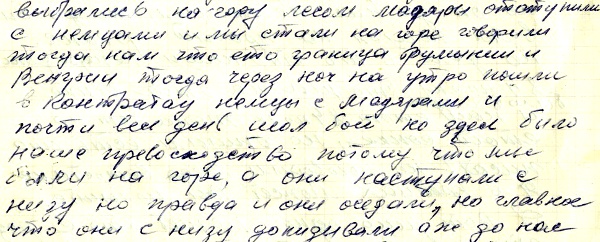 выбрались на гору лесом мадяры отступили
с немцами и мы стали на горе говорили
тогда нам что ето граница Румынии и
Венгрии тогда через ноч на утро пошли
в контратау немцы с мадярами и
почти весь день шол бой но здес было
наше превосходство потому что мы
были на горе, а они наступали с
низу но правда и они оседали, но главное
что они с низу докидывали аж до нас